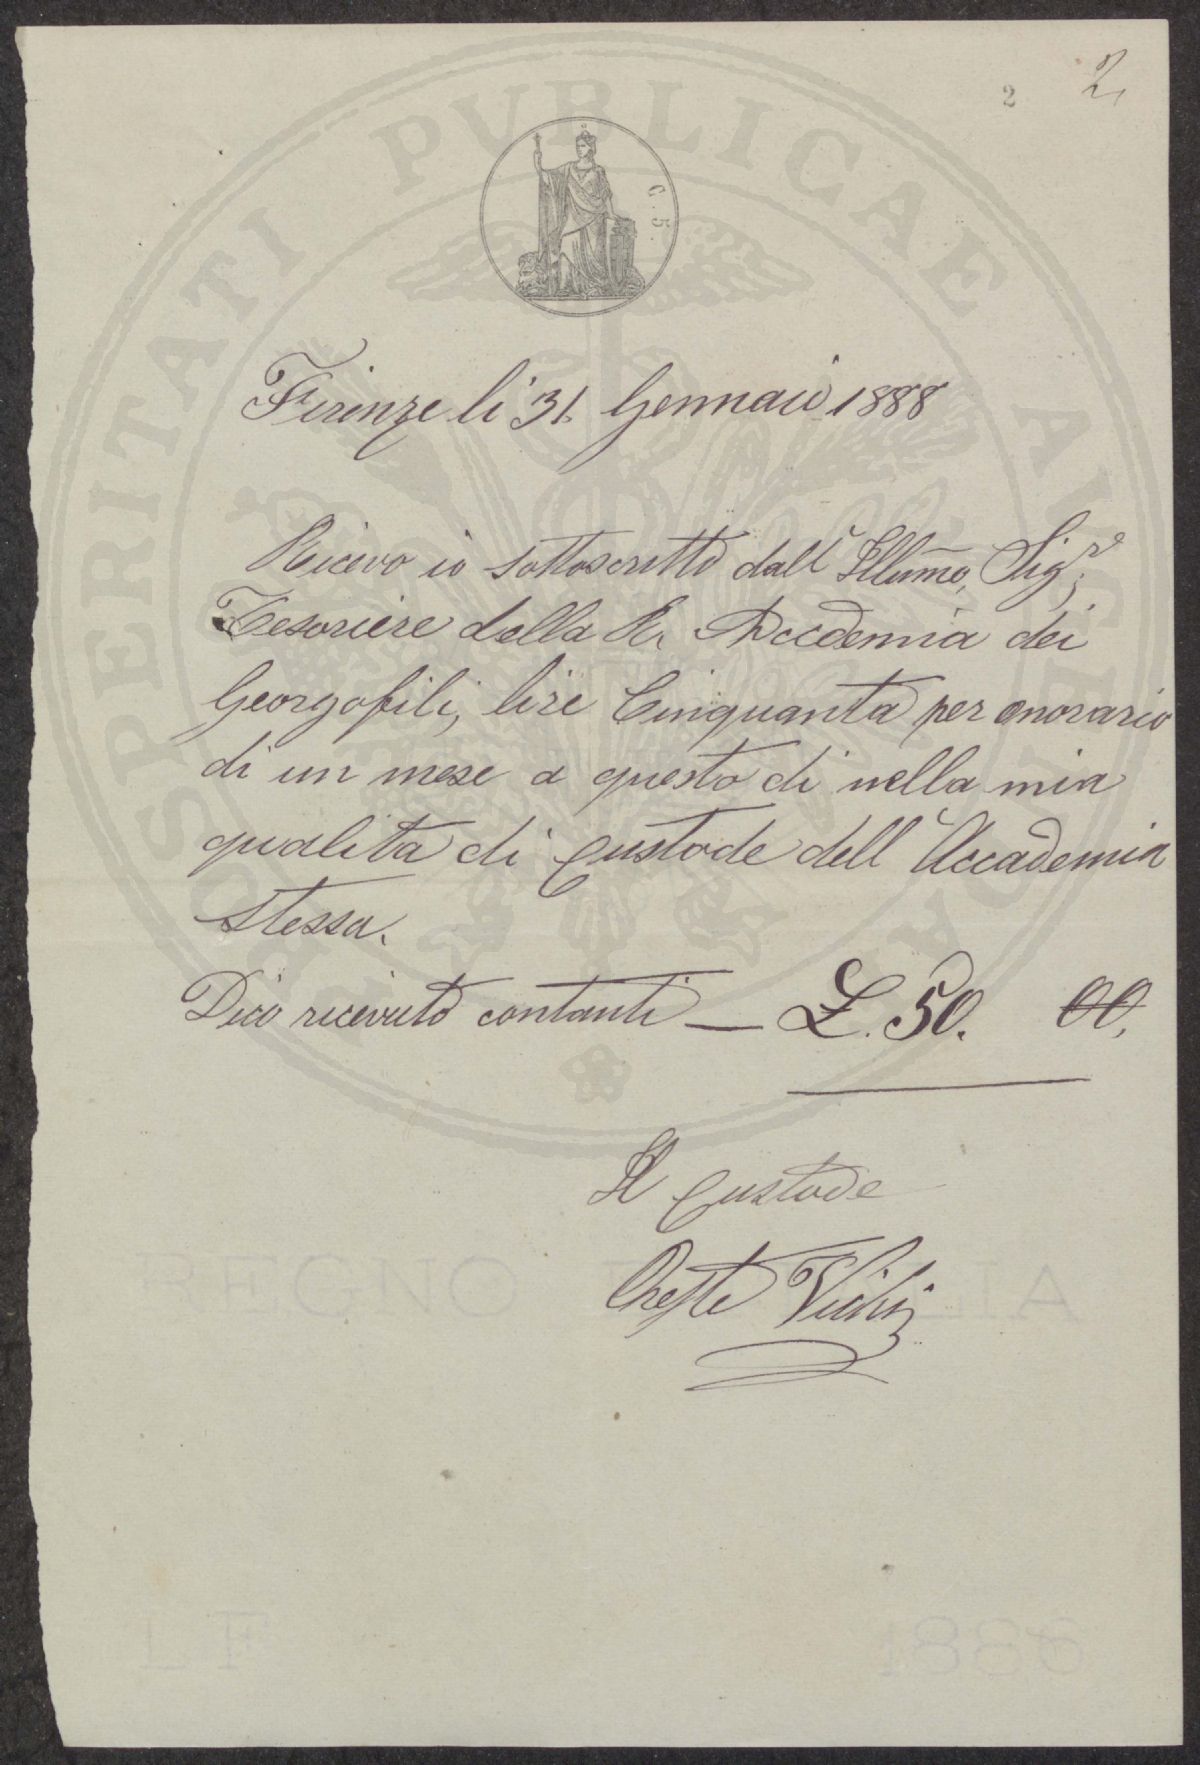 2 2
PROSPERITATI PUBLICAE AUGENDAE
C. 5.
Firenze li 31. Gennaio 1888
Ricevo io sottoscritto dall' Illũmo, Sigr
Tesoriere della R. Accademia dei
Georgofili, lire Cinquanta per onorario
di un mese a questo dì nella mia
qualità di Custode dell' Accademia
stessa.
Dico ricevuto contanti — L. 50. 00,
Il Custode
Oreste
REGNO D'ITALIA
1886